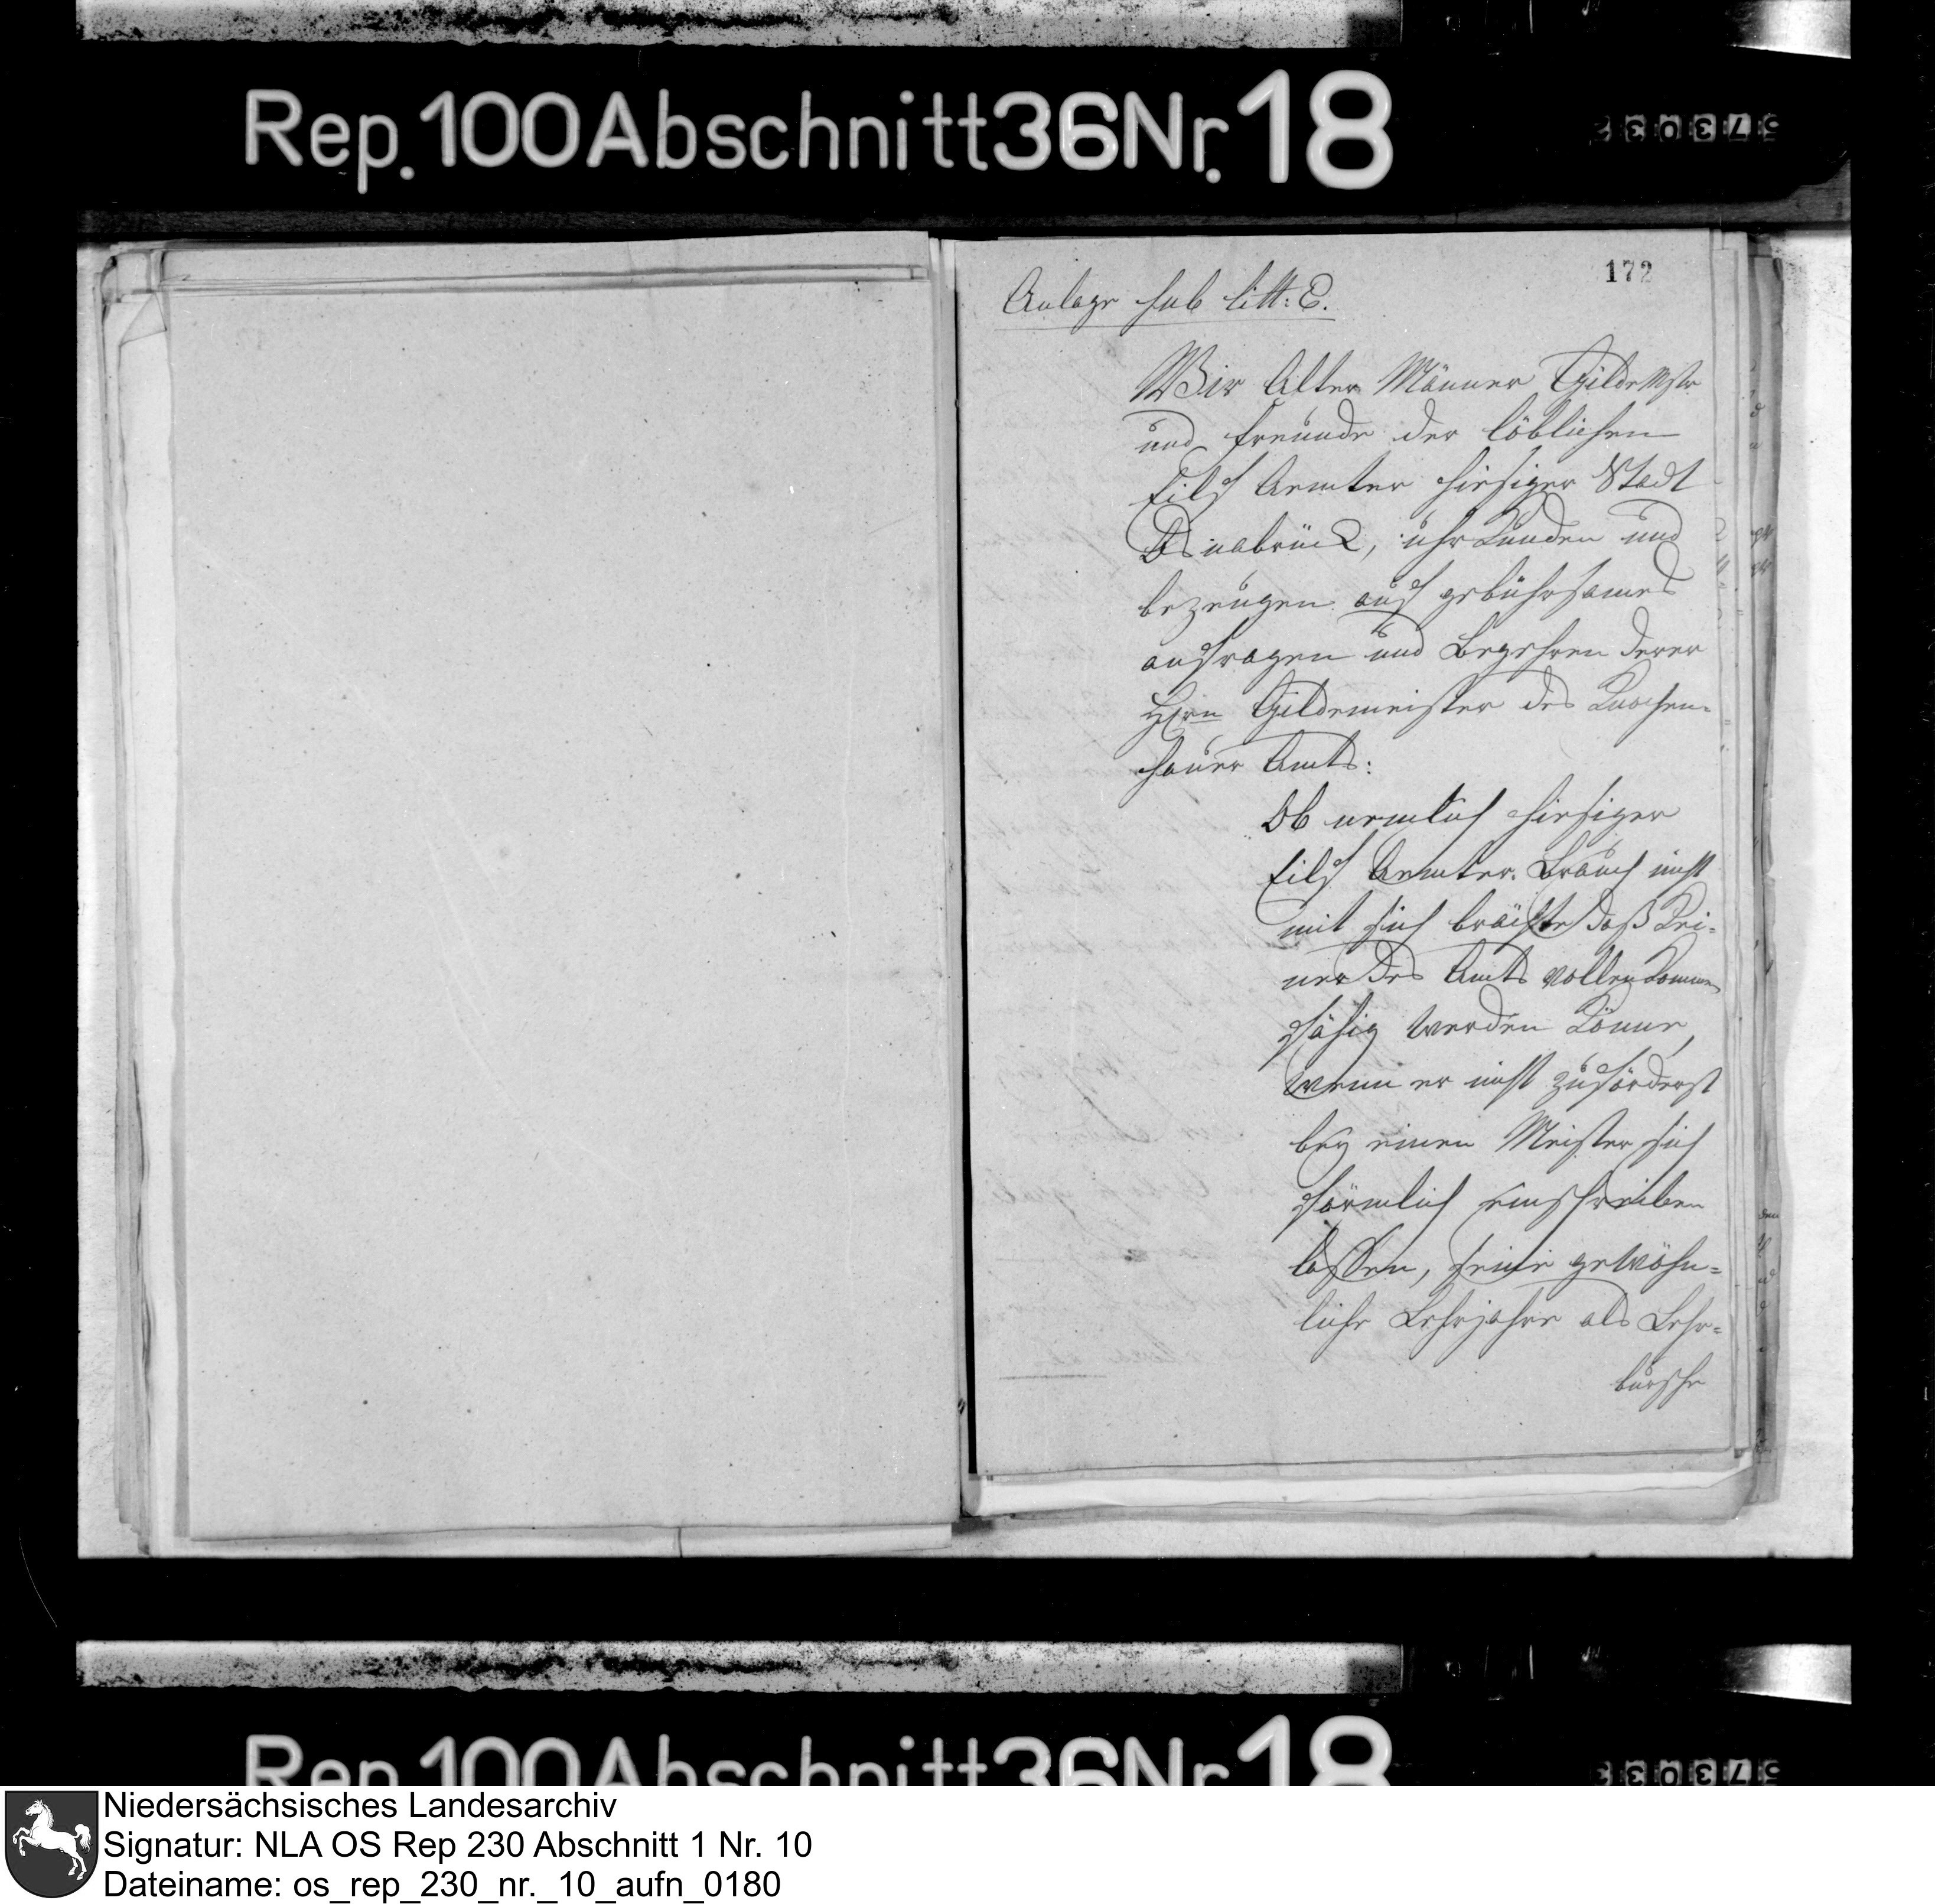 Rep. 100 Abschnitt 36 Nr. 18
172
Anlage sub litt: E.
Wir Alter Männer Gilde Mstr
und freunde der löblichen
Eilf Aemter hiesiger Stadt
Osnabrück, uhrkunden und
bezeugen auf gebührsames
anfragen und Begehren derer
Hrrn Gildemeister des Knochen-
hauer Amts:
Ob nemlich hiesiger
Eilf Aemter Brauch nicht
mit sich brächte daß Kei-
ner des Amts vollenkommen
fähig werden könne,
wenn er nicht zuförderst
bey einen Meister sich
förmlich einschreiben
laßen, seine gewöhn-
liche Lehrjahre als Lehr-
bursche
Rep. 100 Abschnitt 36 Nr. 18
Niedersächsisches Landesarchiv
Signatur: NLA OS Rep 230 Abschnitt 1 Nr. 10
Dateiname: os_rep_230_nr._10_aufn_0180